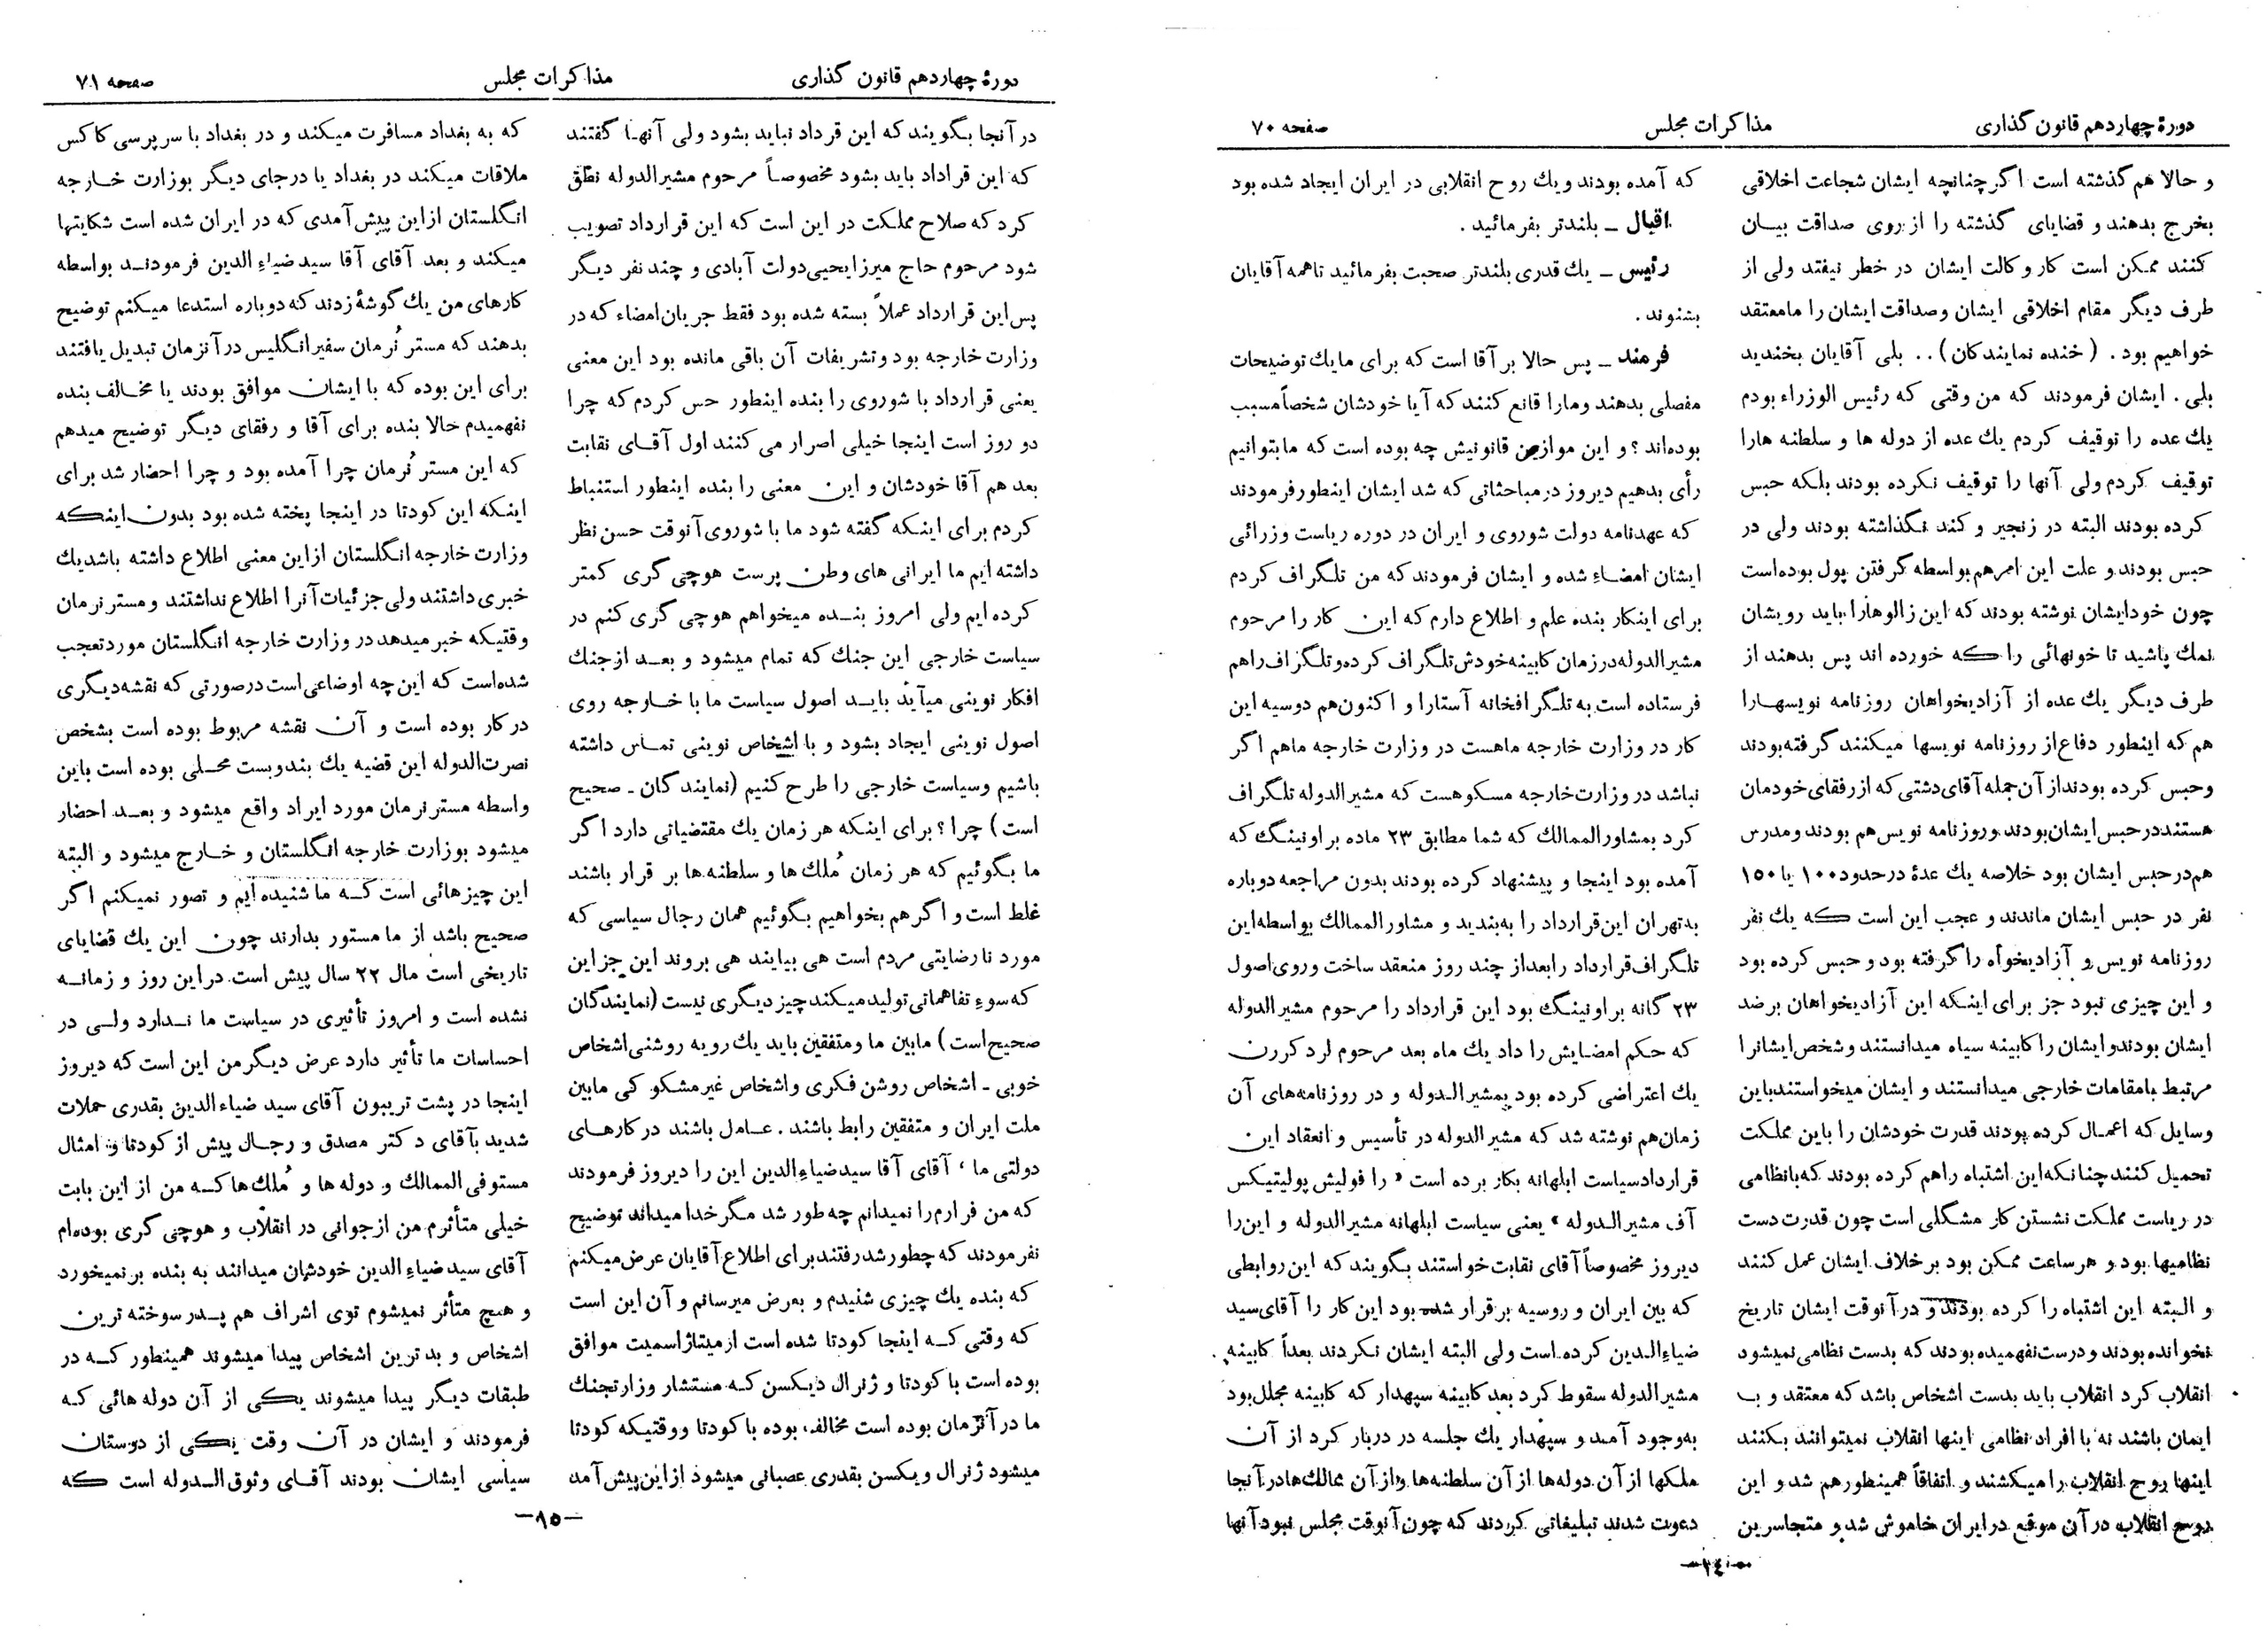 دورهٔ چهاردهم قانون گذاری
مذاکرات مجلس
صفحه ۷۰
و حالا هم گذشته است اگر چنانچه ایشان شجاعت اخلاقی
بخرج بدهند و قضایای گذشته را از روی صداقت بیــان
کنند ممکن است کار وکالت ایشان در خطر نیفتد ولی از
طرف دیگر مقام اخلاقی ایشان وصداقت ایشان را مامعتقد
خواهیم بود. (خنده نمایندکان).. بلی آقایان بخندید
بلی. ایشان فرمودند که من وقتی که رئیس الوزراء بودم
یك عده را توقیف کردم یك عده از دوله ها و سلطنه هارا
توقیف کردم ولی آنها را توقیف نکرده بودند بلکه حبس
کرده بودند البته در زنجیر و کند نگذاشته بودند ولی در
حبس بودند و علت این امرهم بواسطه گرفتن پول بوده‌است
چون خودایشان نوشته بودند که این زالوهارا باید رویشان
نمك پاشید تا خونهائی را که خورده اند پس بدهند از
طرف دیگر یك عده از آزادیخواهان روزنامه نویسهــارا
هم که اینطور دفاع از روزنامه نویسها میکنند گرفته‌بودند
وحبس کرده بودنداز آن جمله آقای دشتی که از رفقای خودمان
هستنددرحبس ایشان‌بودند وروزنامه نویس‌هم بودند ومدرس
هم درحبس ایشان بود خلاصه یك عدهٔ در حدود ۱۰۰ یا ۱۵۰
نفر در حبس ایشان ماندند و عجب این است که یك نفر
روزنامه نویس و آزادیخواه را گرفته بود و حبس کرده بود
و این چیزی نبود جز برای اینکه این آزادیخواهان بر ضد
ایشان بودندوایشان را کابینه سیاه میدانستند وشخص ایشانرا
مرتبط بامقامات خارجی میدانستند و ایشان میخواستندباین
وسایل که اعمــال کرده بودند قدرت خودشان را باین مملکت
تحمیل کنندچنانکه‌این اشتباه راهم کرده بودند که بانظامی
در ریاست مملکت نشستن کار مشگلی است چون قدرت دست
نظامیها بود و هر ساعت ممکن بود بر خلاف ایشان عمل کنند
و البته این اشتباه را کرده بودند و در آنوقت ایشان تاریخ
نخوانده بودند ودرست نفهمیده بودند که بدست نظامی نمیشود
انقلاب کرد انقلاب باید بدست اشخاص باشد که معتقد و بــ
ایمان باشند نه با افراد نظامی اینها انقلاب نمیتوانند بکنند
اینها روح انقلاب را میکشند و اتفاقاً همینطورهم شد و این
روح انقلاب در آن موقع در ایران خاموش شد و متجاسرین
که آمده بودند ویك روح انقلابی در ایران ایجاد شده بود
اقبال ــ بلندتر بفرمائید.
رئیس ــ یك قدری بلندتر صحبت بفرمائید تاهمه آقایان
بشنوند.
فرمند ــ پس حالا بر آقا است که برای ما یك توضیحات
مفصلی بدهند ومارا قانع کنند که آیا خودشان شخصاً مسبب
بوده‌اند؟ و این موازین قانونیش چه بوده است که ما بتوانیم
رأی بدهیم دیروز در مباحثاتی که شد ایشان اینطور فرمودند
که عهدنامه دولت شوروی و ایران در دوره ریاست وزرائی
ایشان امضــاء شده و ایشان فرمودند که من تلگراف کردم
برای اینکار بنده علم و اطلاع دارم که این کار را مرحوم
مشیرالدوله درزمان کابینه‌خودش تلگراف کرده وتلگراف راهم
فرستاده است به تلگرافخانه آستارا و اکنون هم دوسیه این
کار در وزارت خارجه ماهست در وزارت خارجه ماهم اگر
نباشد در وزارت‌خارجه مسکو هست که مشیرالدوله تلگراف
کرد بمشاورالممالك که شما مطابق ۲۳ ماده براونینگ که
آمده بود اینجا و پیشنهاد کرده بودند بدون مراجعه دوباره
بدتهران این‌قرارداد را به‌بندید و مشاورالممالك بواسطه‌این
تلگراف‌قرارداد رابعداز چند روز منعقد ساخت وروی اصول
۲۳ گانه براونینگ بود این قرارداد را مرحوم مشیرالدوله
که حکم امضــایش را داد یك ماه بعد مرحوم لرد کررن
یك اعتراضی کرده بود بمشیرالــدوله و در روزنامه‌های آن
زمان هم نوشته شد که مشیرالدوله در تأسیس و انعقاد این
قراردادسیاست ابلهانه بکار برده است « را فولیش پولیتیکس
آف مشیرالــدوله » یعنی سیاست ابلهانه مشیرالدوله و این‌را
دیروز مخصوصاً آقای نقابت خواستند بگویند که این روابطی
که بین ایران و روسیه برقرار شده بود این کار را آقای سید
ضیاءالــدین کرده است ولی البته ایشان نکردند بعداً کابینه
مشیرالدوله سقوط کرد بعد کابینه سپهدار که کابینه مجلل بود
به‌وجود آمــد و سپهدار یك جلسه در دربار کرد از آن
ملکها از آن دوله‌ها از آن سلطنه‌ها واز آن ممالك‌ها در آنجا
دعوت شدند تبلیغاتی کردند که چون آنوقت مجلس نبود آنها
ــ۱٤ــ
دورهٔ چهاردهم قانون گذاری
مذاکرات مجلس
صفحه ۷۱
در آنجا بگویند که این قرداد نباید بشود ولی آنهــا گفتند
که این قراداد باید بشود مخصوصــاً مرحوم مشیرالدوله نطق
کرد که صلاح مملکت در این است که این قرارداد تصویب
شود مرحوم حاج میرزایحیی دولت آبادی و چند نفر دیگر
پس این قرارداد عملاً بسته شده بود فقط جریان امضاء که در
وزارت خارجه بود وتشریفات آن باقی مانده بود این معنی
یعنی قرارداد با شوروی را بنده اینطور حس کردم که چرا
دو روز است اینجا خیلی اصرار می کنند اول آقــای نقابت
بعد هم آقا خودشان و این معنی را بنده اینطور استنباط
کردم برای اینکه گفته شود ما با شوروی آنوقت حسن نظر
داشته ایم ما ایرانی های وطن پرست هوچی گری کمتر
کرده ایم ولی امروز بنــده میخواهم هوچی گری کنم در
سیاست خارجی این جنك که تمام میشود و بعــد از جنك
افکار نوینی میآید بایــد اصول سیاست ما با خــارجه روی
اصول نوینی ایجاد بشود و با اشخاص نوینی تمــاس داشته
باشیم وسیاست خارجی را طرح کنیم (نمایندگان ــ صحیح
است) چرا؟ برای اینکه هر زمان یك مقتضیاتی دارد اگر
ما بگوئیم که هر زمان مُلك ها و سلطنه ها بر قرار باشند
غلط است و اگر هم بخواهیم بگوئیم همان رجال سیاسی که
مورد نارضایتی مردم است هی بیایند هی بروند این جز این
که سوء تفاهماتی تولیدمیکند چیز دیگری نیست (نمایندگان
صحیح است) مابین ما ومتفقین باید یك رویه روشنی اشخاص
خوبی ــ اشخاص روشن فکری واشخاص غیر مشکوکی مابین
ملت ایران و متفقین رابط باشند. عــامل باشند در کارهــای
دولتی ما، آقای آقا سید ضیاءالدین این را دیروز فرمودند
که من فرارم را نمیدانم چه طور شد مگر خدا میداند توضیح
نفرمودند که چطور شدرفتند برای اطلاع آقایان عرض میکنم
که بنده یك چیزی شنیدم و بعرض میرسانم و آن این است
که وقتی کــه اینجا کودتا شده است ارمیتاژ اسمیت موافق
بوده است با کودتا و ژنرال دیکسن کــه مستشار وزارتجنك
ما در آنزمان بوده است مخالف بوده با کودتا ووقتیکه کودتا
میشود ژنرال ویکسن بقدری عصبانی میشود از این پیش آمد
که به بغداد مسافرت میکند و در بغداد با سر پرسی کاکس
ملاقات میکند در بغداد یا درجای دیگر بوزارت خــارجه
انگلستان از این پیش آمدی که در ایران شده است شکایتها
میکند و بعد آقای آقا سید ضیاء الدین فرمودنــد بواسطه
کارهای من یك گوشهٔ زدند که دوباره استدعا میکنم توضیح
بدهند که مستر نُرمان سفیر انگلیس در آنزمان تبدیل یافتند
برای این بوده که با ایشان موافق بودند یا مخــالف بنده
نفهمیدم حالا بنده برای آقا و رفقای دیگر توضیح میدهم
که این مستر نُرمان چرا آمده بود و چرا احضار شد برای
اینکه این کودتا در اینجا پخته شده بود بدون اینکه
وزارت خارجه انگلستان از این معنی اطلاع داشته باشدیك
خبری داشتند ولی جزئیات آنرا اطلاع نداشتند و مستر نرمان
وقتیکه خبر میدهد در وزارت خارجه انگلستان مورد تعجب
شده‌است که این چه اوضاعی است در صورتی که نقشه دیگری
درکار بوده است و آن نقشه مربوط بوده است بشخص
نصرت‌الدوله این قضیه یك بندوبست محــلی بوده است باین
واسطه مسترنرمان مورد ایراد واقع میشود و بعــد احضار
میشود بوزارت خارجه انگلستان و خــارج میشود و البته
این چیزهائی است کــه ما شنیده ایم و تصور نمیکنم اگر
صحیح باشد از ما مستور بدارند چون این یك قضایای
تاریخی است مال ۲۲ سال پیش است در این روز و زمانــه
نشده است و امروز تأثیری در سیاست ما نــدارد ولــی در
احساسات ما تأثیر دارد عرض دیگر من این است که دیروز
اینجا در پشت تریبون آقای سید ضیاءالدین بقدری حملات
شدید بآقای دکتر مصدق و رجــال پیش از کودتا و امثال
مستوفی الممالك و دوله ها و مُلك‌ها کــه من از این بابت
خیلی متأثرم من از جوانی در انقلاب و هوچی گری بوده‌ام
آقای سید ضیاءالدین خودشان میدانند به بنده بر نمیخورد
و هیچ متأثر نمیشوم توی اشراف هم پــدر سوخته ترین
اشخاص و بدترین اشخاص پیدا میشوند همینطور کــه در
طبقات دیگر پیدا میشوند یکی از آن دوله هائی کــه
فرمودند و ایشان در آن وقت یکی از دوستان
سیاسی ایشان بودند آقــای وثوق‌الــدوله است که
ــ۱۵ــ